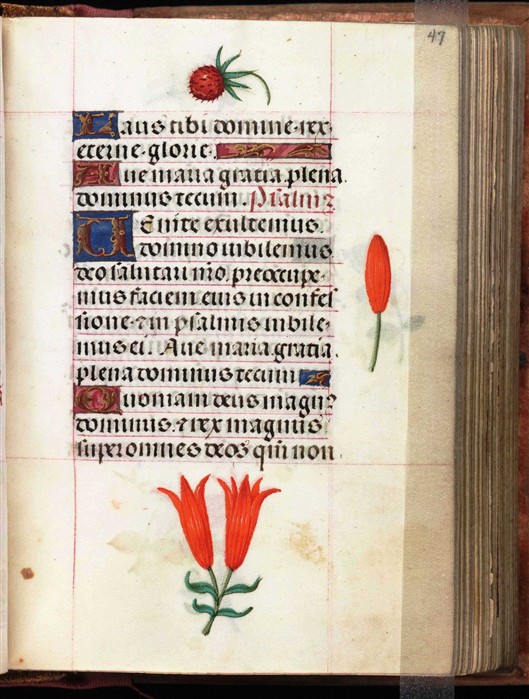 47
Laus tibi domine rex
eterne glorie.
Aue maria gratia plena
dominus tecum. Psalmꝰ
Uenite exultemus
domino iubilemus
deo salutari nr̄o, preocupe-
mus faciem eius in confes
sione ⁊ in psalmis iubile-
mus ei. Aue maria gratia
plena dominus tecum
Quoniam deus magnꝰ
dominus. ⁊ rex magnus
super omnes deos qm̄ non